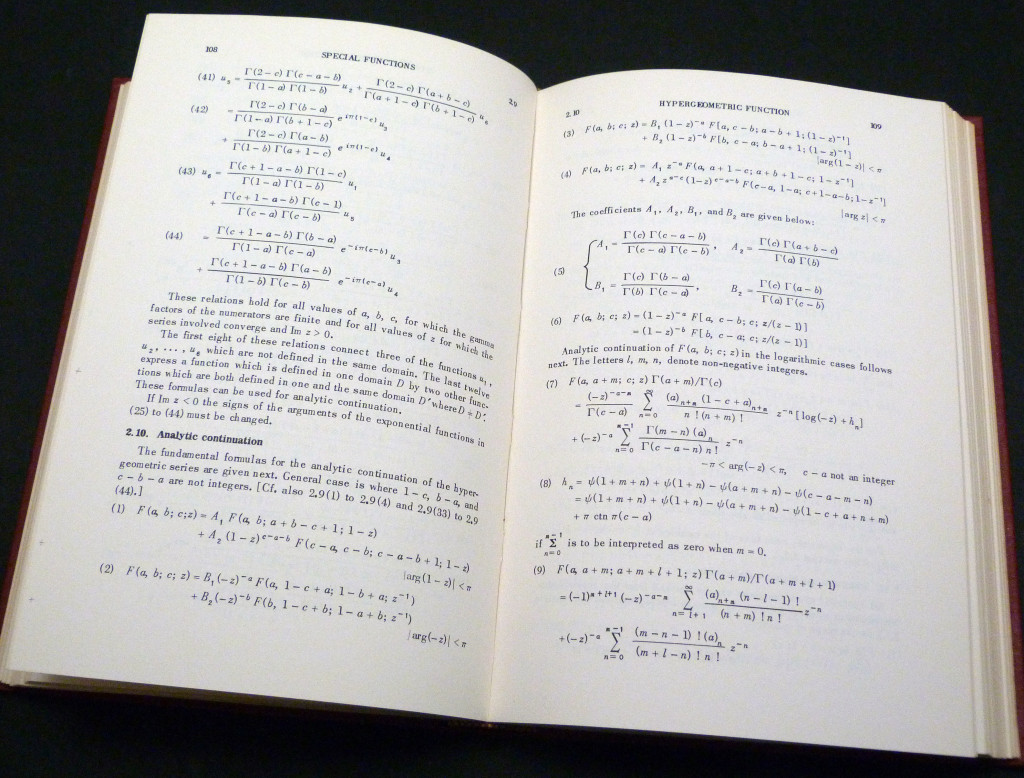 108
SPECIAL FUNCTIONS
2.9
(41) u₅ = Γ(2 − c) Γ(c − a − b) / Γ(1 − a) Γ(1 − b) u₂ + Γ(2 − c) Γ(a + b − c) / Γ(a + 1 − c) Γ(b + 1 − c) u₆
(42) = Γ(2 − c) Γ(b − a) / Γ(1 − a) Γ(b + 1 − c) e^{iπ(1−c)} u₃
+ Γ(2 − c) Γ(a − b) / Γ(1 − b) Γ(a + 1 − c) e^{iπ(1−c)} u₄
(43) u₆ = Γ(c + 1 − a − b) Γ(1 − c) / Γ(1 − a) Γ(1 − b) u₁
+ Γ(c + 1 − a − b) Γ(c − 1) / Γ(c − a) Γ(c − b) u₅
(44) = Γ(c + 1 − a − b) Γ(b − a) / Γ(1 − a) Γ(c − a) e^{−iπ(c−b)} u₃
+ Γ(c + 1 − a − b) Γ(a − b) / Γ(1 − b) Γ(c − b) e^{−iπ(c−a)} u₄
These relations hold for all values of a, b, c, for which the gamma
factors of the numerators are finite and for all values of z for which the
series involved converge and Im z > 0.
The first eight of these relations connect three of the functions u₁,
u₂, ..., u₆ which are not defined in the same domain. The last twelve
express a function which is defined in one domain D by two other func-
tions which are both defined in one and the same domain D′ where D + D′.
These formulas can be used for analytic continuation.
If Im z < 0 the signs of the arguments of the exponential functions in
(25) to (44) must be changed.
2.10. Analytic continuation
The fundamental formulas for the analytic continuation of the hyper-
geometric series are given next. General case is where 1 − c, b − a, and
c − b − a are not integers. [Cf. also 2.9(1) to 2.9(4) and 2.9(33) to 2.9
(44).]
(1) F(a, b; c; z) = A₁ F(a, b; a + b − c + 1; 1 − z)
+ A₂ (1 − z)^{c−a−b} F(c − a, c − b; c − a − b + 1; 1 − z)
|arg(1 − z)| < π
(2) F(a, b; c; z) = B₁(−z)^{−a} F(a, 1 − c + a; 1 − b + a; z^{−1})
+ B₂(−z)^{−b} F(b, 1 − c + b; 1 − a + b; z^{−1})
|arg(−z)| < π
2.10
HYPERGEOMETRIC FUNCTION
109
(3) F(a, b; c; z) = B₁ (1 − z)^{−a} F[a, c − b; a − b + 1; (1 − z)^{−1}]
+ B₂ (1 − z)^{−b} F[b, c − a; b − a + 1; (1 − z)^{−1}]
|arg(1 − z)| < π
(4) F(a, b; c; z) = A₁ z^{−a} F(a, a + 1 − c; a + b + 1 − c; 1 − z^{−1})
+ A₂ z^{a−c} (1 − z)^{c−a−b} F(c − a, 1 − a; c + 1 − a − b; 1 − z^{−1})
|arg z| < π
The coefficients A₁, A₂, B₁, and B₂ are given below:
(5) A₁ = Γ(c) Γ(c − a − b) / Γ(c − a) Γ(c − b), A₂ = Γ(c) Γ(a + b − c) / Γ(a) Γ(b)
B₁ = Γ(c) Γ(b − a) / Γ(b) Γ(c − a), B₂ = Γ(c) Γ(a − b) / Γ(a) Γ(c − b)
(6) F(a, b; c; z) = (1 − z)^{−a} F[a, c − b; c; z/(z − 1)]
= (1 − z)^{−b} F[b, c − a; c; z/(z − 1)]
Analytic continuation of F(a, b; c; z) in the logarithmic cases follows
next. The letters l, m, n, denote non-negative integers.
(7) F(a, a + m; c; z) Γ(a + m)/Γ(c)
= (−z)^{−a−m} / Γ(c − a) Σ_{n=0}^{∞} (a)_{n+m} (1 − c + a)_{n+m} / n! (n + m)! z^{−n} [log(−z) + hₙ]
+ (−z)^{−a} Σ_{n=0}^{m−1} Γ(m − n) (a)ₙ / Γ(c − a − n) n! z^{−n}
−π < arg(−z) < π, c − a not an integer
(8) hₙ = ψ(1 + m + n) + ψ(1 + n) − ψ(a + m + n) − ψ(c − a − m − n)
= ψ(1 + m + n) + ψ(1 + n) − ψ(a + m + n) − ψ(1 − c + a + n + m)
+ π ctn π(c − a)
if Σ_{n=0}^{m−1} is to be interpreted as zero when m = 0.
(9) F(a, a + m; a + m + l + 1; z) Γ(a + m)/Γ(a + m + l + 1)
= (−1)^{m+l+1} (−z)^{−a−m} Σ_{n=l+1}^{∞} (a)_{n+m} (n − l − 1)! / (n + m)! n! z^{−n}
+ (−z)^{−a} Σ_{n=0}^{m−1} (m − n − 1)! (a)ₙ / (m + l − n)! n! z^{−n}